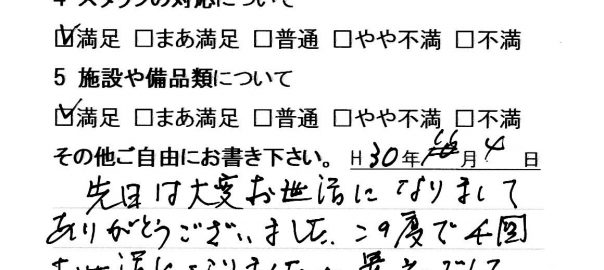 4 スタッフの対応について
☑満足 □まあ満足 □普通 □やや不満 □不満
5 施設や備品類について
☑満足 □まあ満足 □普通 □やや不満 □不満
その他ご自由にお書き下さい。 H30年 月4日
先日は大変お世話になりまして
ありがとうございました。この度で4回
お世話になりました。